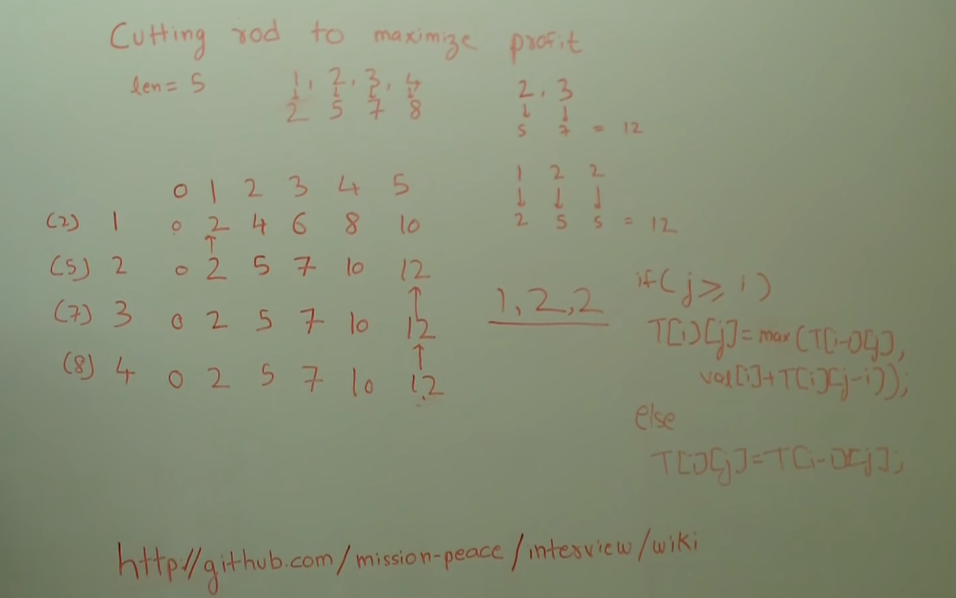 Cutting rod to maximize profit
len = 5
1, 2, 3, 4
↓ ↓ ↓ ↓
2 5 7 8
2, 3
↓ ↓
5 7 = 12
1 2 2
↓ ↓ ↓
2 5 5 = 12
0 1 2 3 4 5
(2) 1 0 2 4 6 8 10
↑
(5) 2 0 2 5 7 10 12
↑
(7) 3 0 2 5 7 10 12
↑
(8) 4 0 2 5 7 10 12
1, 2, 2
if(j ≥ i)
T[i][j] = max(T[i-1][j],
val[i]+T[i][j-i]);
else
T[i][j]=T[i-1][j];
http://github.com/mission-peace/interview/wiki